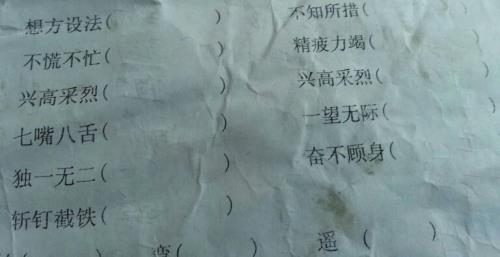 想方设法( ) 不知所措(
不慌不忙( ) 精疲力竭(
兴高采烈( ) 兴高采烈(
七嘴八舌( ) 一望无际(
独一无二( ) 奋不顾身(
斩钉截铁( )
( ) 蛮( ) 遥 ( )